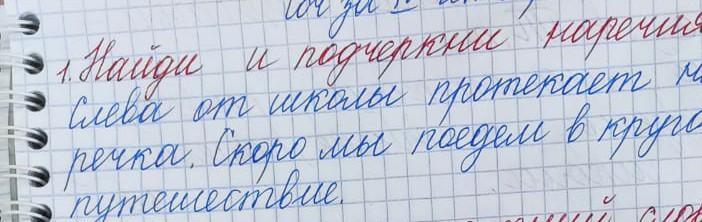 1. Найди и подчеркни наречия
Слева от школы протекает
речка. Скоро мы поедем в
путешествие.